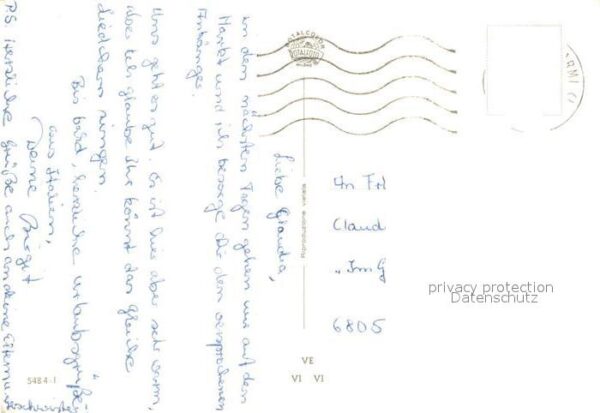 Liebe Claudia,
in den nächsten Tagen gehen wir auf den
Markt und ich besorge Dir den versprochenen
Anhänger.
Uns geht es gut. Es ist hier aber sehr warm,
aber ich glaube Ihr könnt das gleiche
Liedchen singen.
Bis bald, herzliche Urlaubsgrüße
aus Italien,
Deine Birgit
P.S. Herzliche Grüße auch an deine Eltern u.
Geschwister
TOTALCOLOR
FOTALCOLOR
ERMI
Riproduzione vietata
An Frl
Claud
"Im G
6805
privacy protection
Datenschutz
VE
VI VI
548 4-1